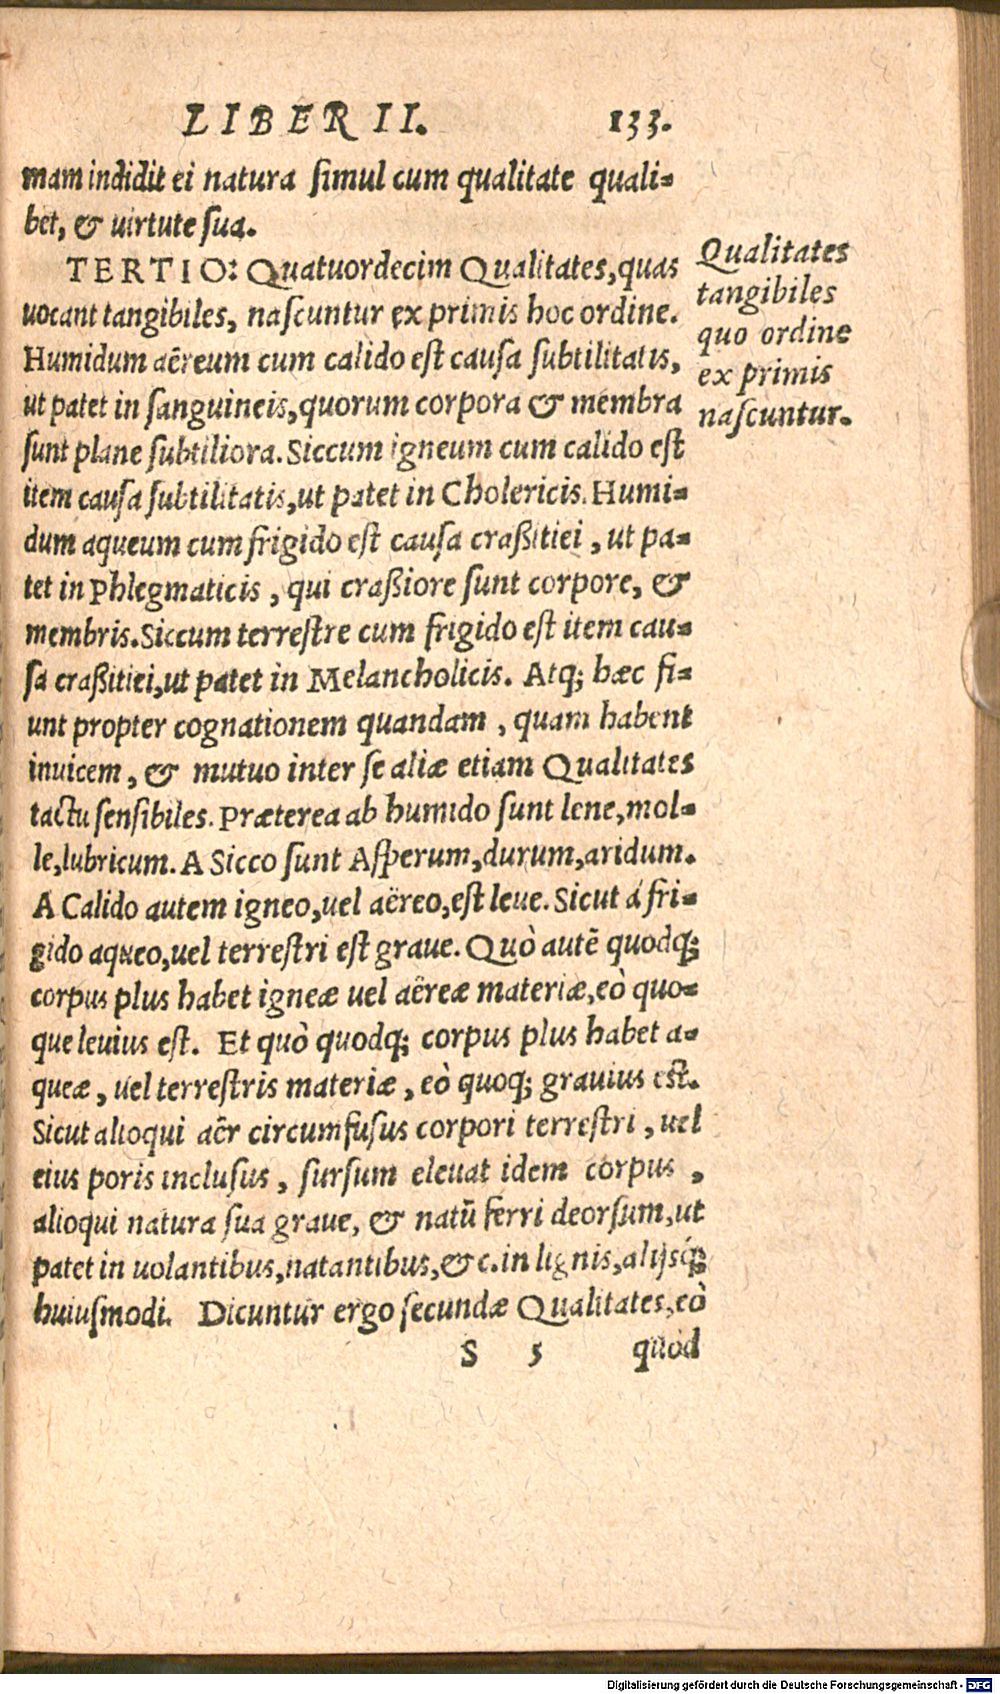 LIBER II. 133.
mam indidit ei natura simul cum qualitate quali-
bet, & uirtute sua.
TERTIO: Quatuordecim Qualitates, quas
uocant tangibiles, nascuntur ex primis hoc ordine.
Humidum aëreum cum calido est causa subtilitatis,
ut patet in sanguineis, quorum corpora & membra
sunt plane subtiliora. Siccum igneum cum calido est
item causa subtilitatis, ut patet in Cholericis. Humi-
dum aqueum cum frigido est causa craßitiei, ut pa-
tet in Phlegmaticis, qui craßiore sunt corpore, &
membris. Siccum terrestre cum frigido est item cau-
sa craßitiei, ut patet in Melancholicis. Atq; hæc fi-
unt propter cognationem quandam, quam habent
inuicem, & mutuo inter se aliæ etiam Qualitates
tactu sensibiles. Præterea ab humido sunt lene, mol-
le, lubricum. A Sicco sunt Asperum, durum, aridum.
A Calido autem igneo, uel aëreo, est leue. Sicut á fri-
gido aqueo, uel terrestri est graue. Quò autē quodq;
corpus plus habet igneæ uel aëreæ materiæ, eò quo-
que leuius est. Et quò quodq; corpus plus habet a-
queæ, uel terrestris materiæ, eò quoq; grauius est.
Sicut alioqui aër circumfusus corpori terrestri, uel
eius poris inclusus, sursum eleuat idem corpus,
alioqui natura sua graue, & natū ferri deorsum, ut
patet in uolantibus, natantibus, &c. in lignis, alijsq́;
huiusmodi. Dicuntur ergo secundæ Qualitates, eò
S 5 quod
Qualitates
tangibiles
quo ordine
ex primis
nascuntur.
Digitalisierung gefördert durch die Deutsche Forschungsgemeinschaft - DFG